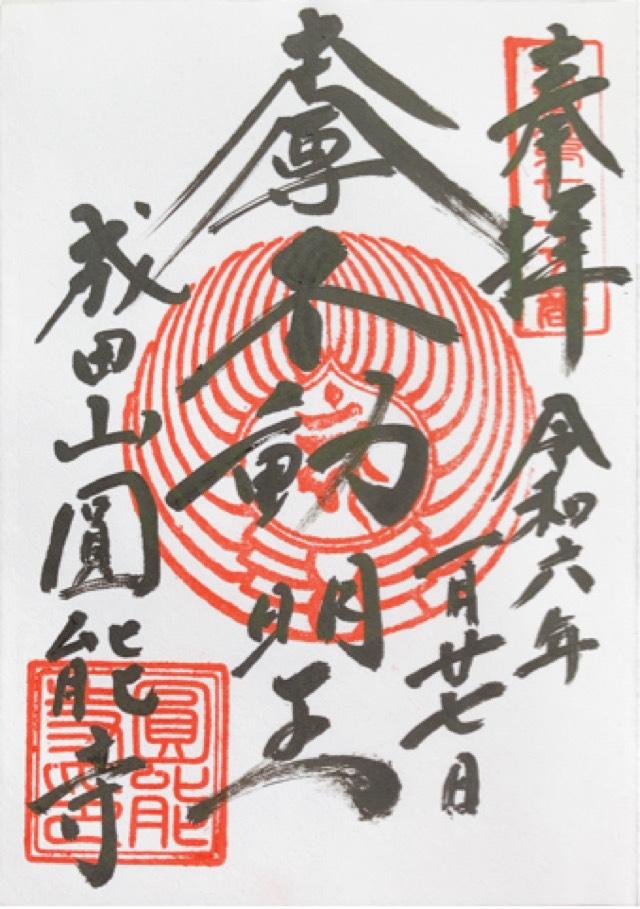 奉拝
令和六年
一月廿七日
本尊
不動明王
成田山圓能寺
圓能
寺印